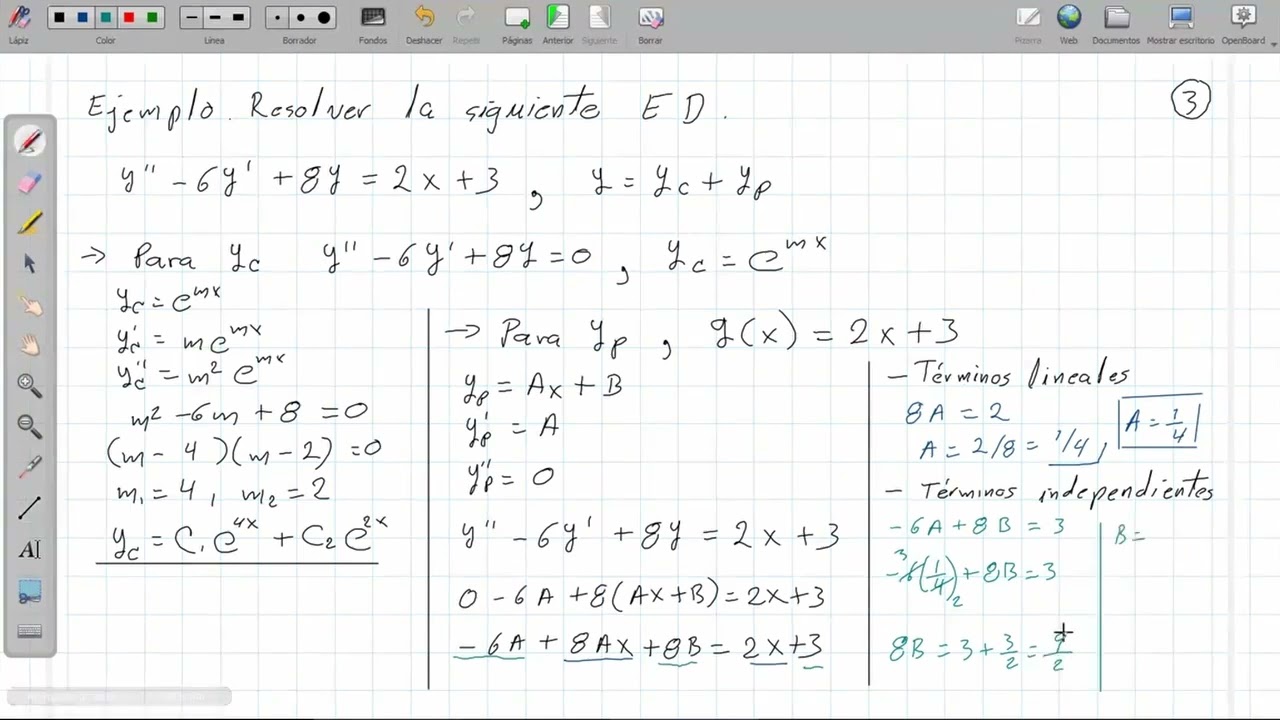 Lápiz Color Línea Borrador Fondos Deshacer Repetir Páginas Anterior Siguiente Borrar Pizarra Web Documentos Mostrar escritorio OpenBoard
Ejemplo. Resolver la siguiente ED.
3
y'' - 6y' + 8y = 2x + 3 , y = yc + yp
→ Para yc y'' - 6y' + 8y = 0 , yc = e^mx
yc = e^mx
yc' = me^mx
yc'' = m² e^mx
m² - 6m + 8 = 0
(m - 4)(m - 2) = 0
m₁ = 4, m₂ = 2
yc = C₁e^4x + C₂e^2x
→ Para yp , g(x) = 2x + 3
yp = Ax + B
yp' = A
yp'' = 0
y'' - 6y' + 8y = 2x + 3
0 - 6A + 8(Ax + B) = 2x + 3
-6A + 8Ax + 8B = 2x + 3
- Términos lineales
8A = 2
A = 2/8 = 1/4, A = 1/4
- Términos independientes
-6A + 8B = 3
-6³(1/4)₂ + 8B = 3
8B = 3 + 3/2 = 9/2
B =
AI